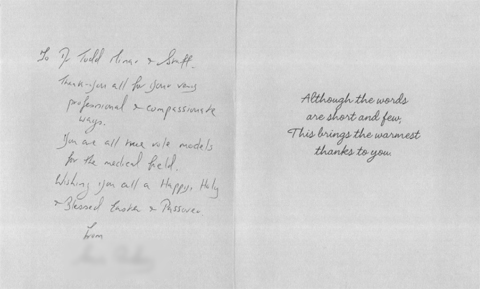 To Dr Todd Minar & Staff.
Thank-you all for your very
professional & compassionate
ways.
You are all true role models
for the medical field.
Wishing you all a Happy, Holy
& Blessed Easter & Passover
From
Although the words
are short and few,
This brings the warmest
thanks to you.